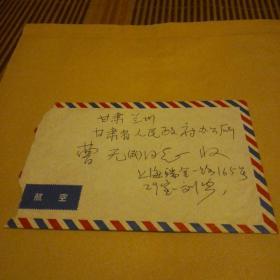 甘肃 兰州
甘肃省人民政府办公厅
曹 无国同志 收
上海瑞金一路165号
29室 刘
航 空